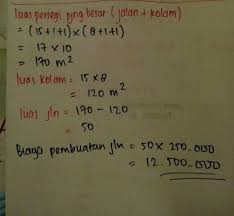 luas persegi pjng besar (jalan + kolam)
= (15+1+1) × (8+1+1)
= 17 × 10
= 170 m²
luas kolam = 15 × 8
= 120 m²
luas jln = 170 - 120
= 50
Biaya pembuatan jln = 50 × 250.000
= 12.500.000